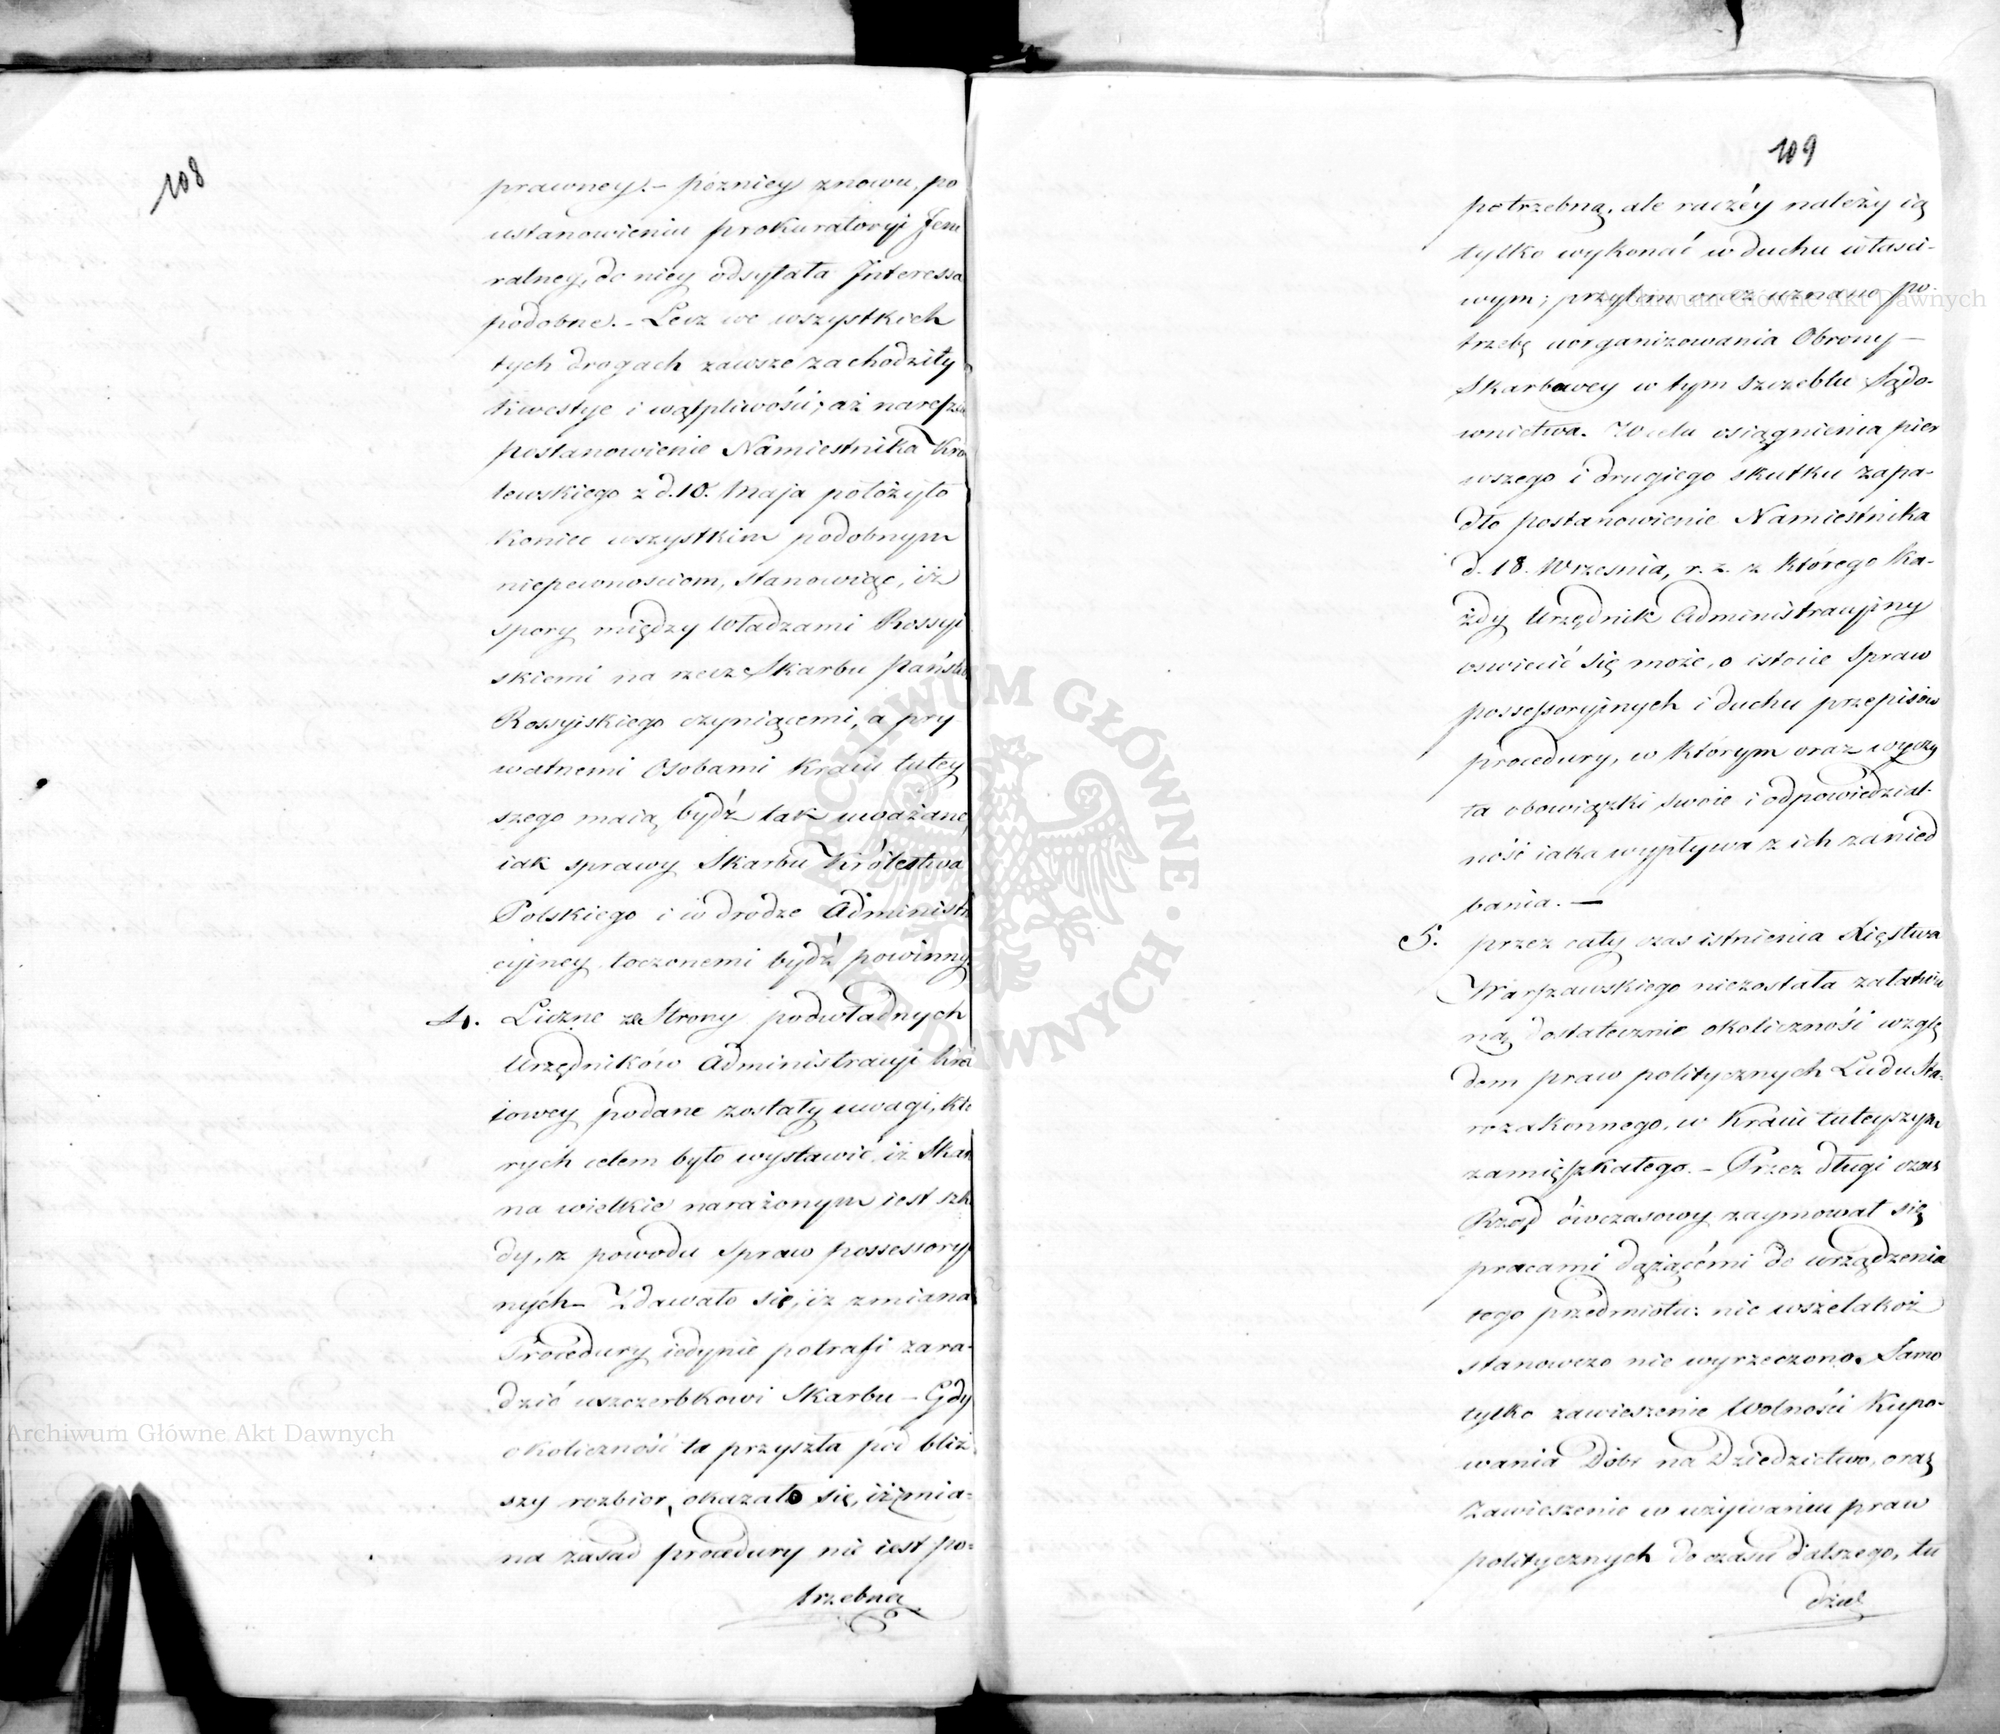 108
prawney. – poźniey znowu, po
ustanowieniu prokuratoryi Jene
ralney, do niey odsyłała Interessa
podobne. – Lecz we wszystkich
tych drogach zawsze zachodziły
kwestye i wątpliwości; aż nareszcie
postanowienie Namiestnika Kró
lewskiego z d. 10. Maja położyło
koniec wszystkim podobnym
niepewnosciom, stanowiąc, iż
spory między Władzami Rossyi
skiemi na rzecz Skarbu Państwa
Rossyiskiego czyniącemi, a pry
watnemi Osobami Kraiu tutey
szego maią bydź tak uważane,
iak sprawy Skarbu Królestwa
Polskiego i w drodze Administra
cyiney toczonemi bydź powinny.
4. Liczne ze Strony podwładnych
Urzędników Administracyi Kra
iowey podane zostały uwagi, któ
rych celem było wystawić, iż Skarb
na wielkie narażonym iest szko
dy, z powodu Spraw possessoryi
nych – Zdawało się, iż zmiana
Procedury iedynie potrafi zara-
dzić uszczerbkowi Skarbu – Gdy
okoliczność ta przyszła pod bliż
szy rozbior, okazało się, iż zmia-
na zasad procedury nie iest po-
trzebna
109
potrzebną, ale raczéy należy ią
tylko wykonać w duchu właści-
wym; przytem oraz uznano po-
trzebę uorganizowania Obrony
Skarbowey w tym szczeblu Sądo-
wnictwa. W celu osiągnienia pier
wszego i drugiego skutku zapa-
dło postanowienie Namiestnika
d. 18. Września, r. z. z którego ka-
żdy Urzędnik Administracyiny
oswiecić się może, o istocie Spraw
possessoryinych i duchu przepisów
procedury, w którym oraz wyczy
ta obowiązki swoie i odpowiedzial-
ność iaka wypływa z ich zanied
bania. –
5. przez cały czas istnienia Xięstwa
Warszawskiego niezostała załatwio
ną dostatecznie okoliczność wzglę
dem praw politycznych Ludu Sta-
rozakonnego, w Kraiu tuteyszym
zamięszkałego. – Przez długi czas
Rząd ówczasowy zaymował się
pracami dążącémi do urządzenia
tego przedmiotu: nic wszelakoż
stanowczo nie wyrzeczono. Samo
tylko zawieszenie Wolności Kupo-
wania Dóbr na Dziedzictwo, oraz
Zawieszenie w używaniu praw
politycznych do czasu dalszego, tu
dzież
Archiwum Główne Akt Dawnych
Archiwum Główne Akt Dawnych
ARCHIWUM GŁÓWNE AKT DAWNYCH